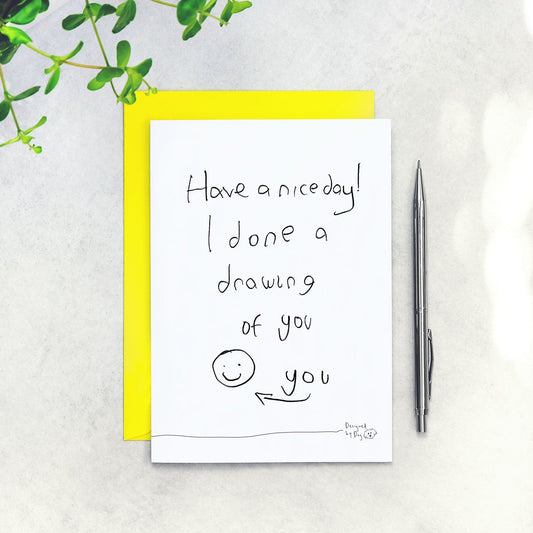 Have a nice day!
I done a
drawing
of you
you
Designed
by Dog